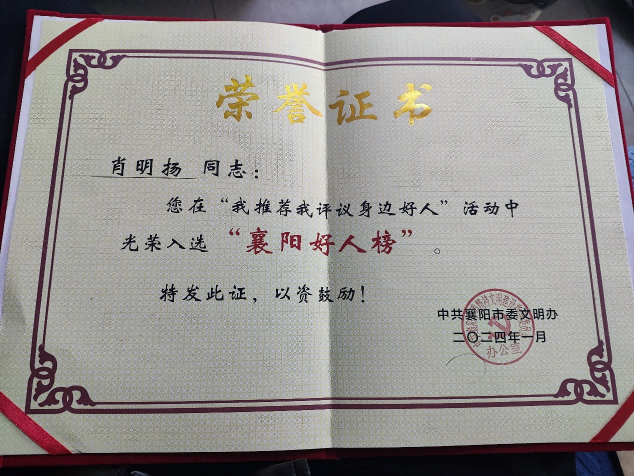 荣誉证书
肖明扬 同志：
您在“我推荐我评议身边好人”活动中
光荣入选“襄阳好人榜”。
特发此证，以资鼓励！
中共襄阳市委文明办
二〇二四年一月
办公室